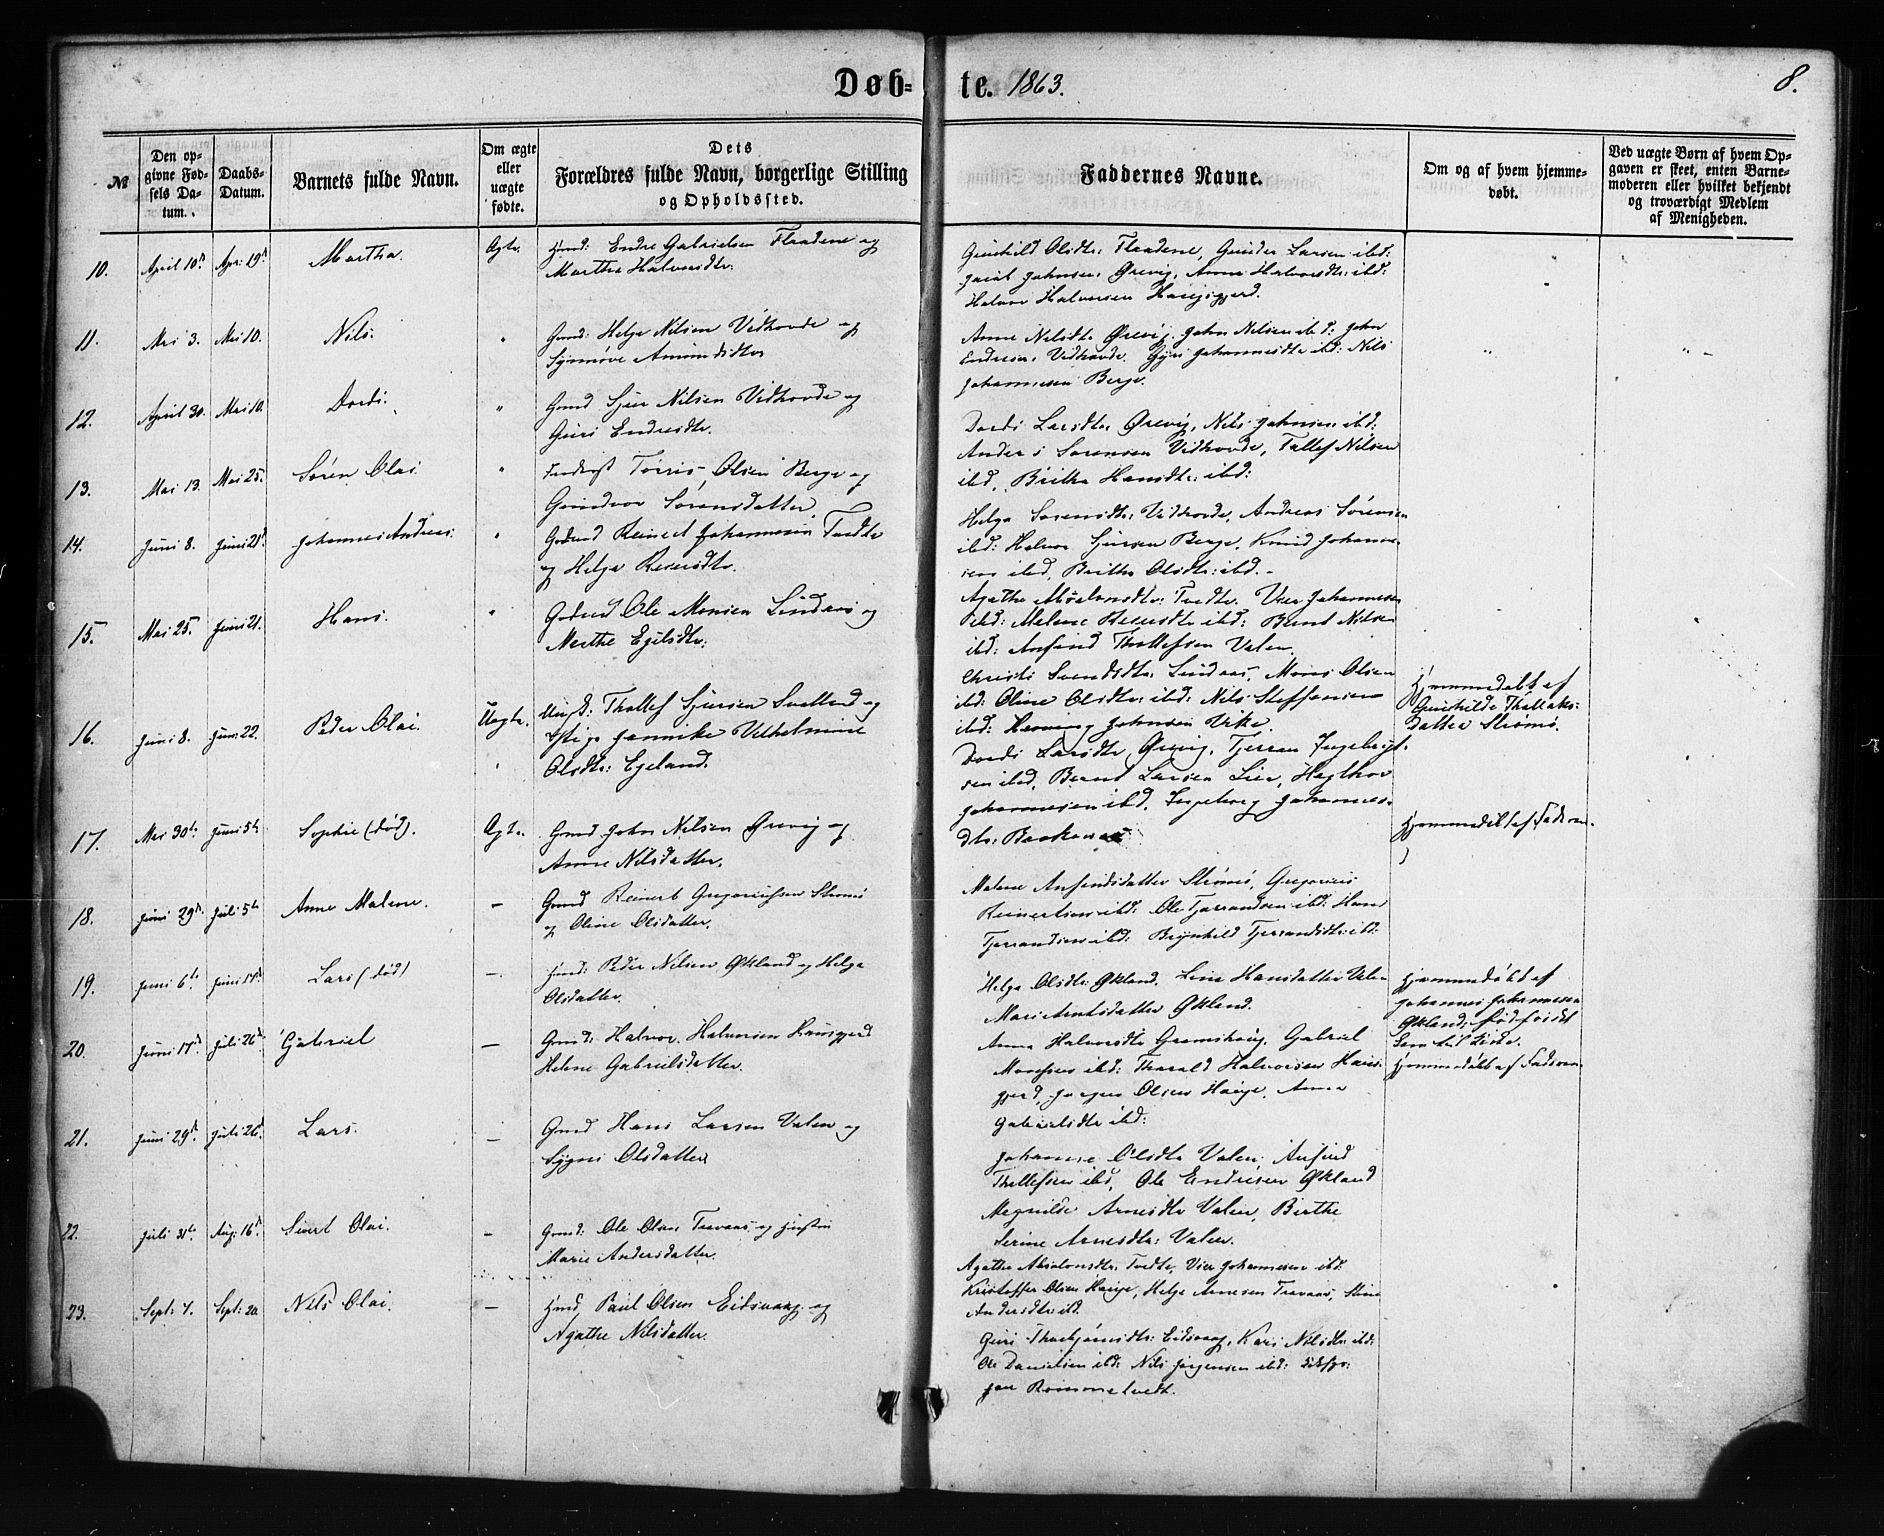 Døb- te. 1863. 8.
№
Den opgivne Fødsels Datum.
Daabs-Datum.
Barnets fulde Navn.
Om ægte eller uægte fødte.
Dets Forældres fulde Navn, borgerlige Stilling og Opholdssted.
Faddernes Navne.
Om og af hvem hjemmedøbt.
Ved uægte Børn af hvem Opgaven er skeet, enten Barnemoderen eller hvilket bekjendt og troværdigt Medlem af Menigheden.
10. April 10 Apr: 19 Martha. Ægte. Endre Gabrielsen Fladene og
Martha Halvorsdtr:
Gunhild Olsdtr: Fladene, Gunder Larsen ibd:
Jacob Johnsen Ørevig, Anna Halvorsdtr: ibd:
Halvor Halvorsen
11. Mai 3. Mai 10. Nils. " Gmd: Helge Nilsen Vidhovde og
Synnøve Amundsdtr
Anne Nilsdtr Ørevig. John Nilsen ibd: John
Endresen Vidhovde. Gyri Johannesdtr ibd: Nils
Johannesen Berge.
12. April 30. Mai 10. Dordi. " Gmd Sjur Nilsen Vidhovde og
Guri Endresdtr.
Dordi Larsdtr. Ørevig, Nils Johnsen ibd:
Anders Sørensen Vidhovde, Tallef Nilsen
ibd, Britha Hansdtr: ibd:
13. Mai 13. Mai 25. Søren Olai " Torris Olsen Berge og
Sørensdatter.
Helga Sørensdtr: Vidhovde, Andreas Sørensen
ibd: Halvor Sjursen Berge, Knud Johanne-
sen ibd, Britha Olsdtr: ibd.
14. Juni 8. Juni 21. Johannes Andreas. " Reinert Johannesen Tvedte
og Helga
Agathe Tvedte. Johannesen
ibd: Malene ibd: Bernt Nilsen
ibd: Anfind Thollefsen Valen.
15. Mai 25. Juni 21. Hans. " Ole Monsen Lindaas og
Marthe Egilsdtr:
Christi Svendsdtr Lindaas, Mons Olsen
ibd: Oline Olsdtr: ibd: Nils Steffensen
ibd: Henning Johnsen Vike.
16. Juni 8. Juni 22. Peder Olai. Uægte. Ungk: Thollef Sjursen Svolland og
Pige Jannike Vilhelmine
Olsdtr: Egeland.
Dordi Larsdtr Ørevig, Tjerran Ingebrigt-
sen ibd, Bernt Larsen Lier,
Johannesen ibd. Ingeborg Johannes-
dtr:
Hjemmedøbt af
Gunhilde Thollaks-
datter Strømø.
17. Mai 30te Juni 5te Sophie (død). Ægte. Gmd John Nilsen Ørevig og
Anne Nilsdatter.
Hjemmedøbt af Faderen.
18. Juni 29 Juli 5te Anne Malene. — Gmd Reinert Gregoriussen Strømø
og Oline Olsdatter.
Malene Anfindsdatter Strømø, Gregorius
Reinertsen ibd: Ole Tjerrandsen ibd: Hans
Tjerrandsen ibd: Brynhild Tjerrandsdtr: ibd.
19. Juni 6te Juni 17 Lars (død) — Peder Nilsen Økland og Helga
Olsdatter.
Helga Olsdtr: Økland. Lina Hansdatter Valen
Mari Arntsdatter Økland.
Hjemmedøbt af
Johannes Johannesen
Økland;
20. Juni 17 Juli 26 Gabriel — Gmd: Halvor Halvorsen
Helene Gabrielsdatter.
Anna Halvorsdtr Grønshoug. Gabriel
Monsen ibd: Tharald Halvorsen
Olsen Hauge. Anna
Gabrielsdtr ibd:
Hjemmedøbt af Faderen
21. Juni 29 Juli 26 Lars. — Gmd Hans Larsen Valen og
Sygni Olsdatter
Johanne Olsdtr Valen. Anfind
Thollefsen ibd, Ole Endresen Økland
Magnilde Arnesdtr Valen, Birthe
Serine Arnesdtr: Valen.
22. Juli 31te Aug: 16 Sivert Olai. — Gmd: Ole Olsen Travaas og
Marie Andersdatter.
Agathe Absalonsdtr. Tvedte, Johannesen ibd.
Kristoffer Olsen Hauge, Helge Arnesen Travaas, Stine
Andersdtr ibd.
23. Sept: 7. Sept: 20. Nils Olai. — Paul Olsen Eidsvaag og
Agathe Nilsdatter.
Guri Thorbjørnsdtr: Eidsvaag, Kari Nilsdtr: ibd:
Ole Danielsen ibd: Nils Jørgensen ibd:
Rommetvedt.